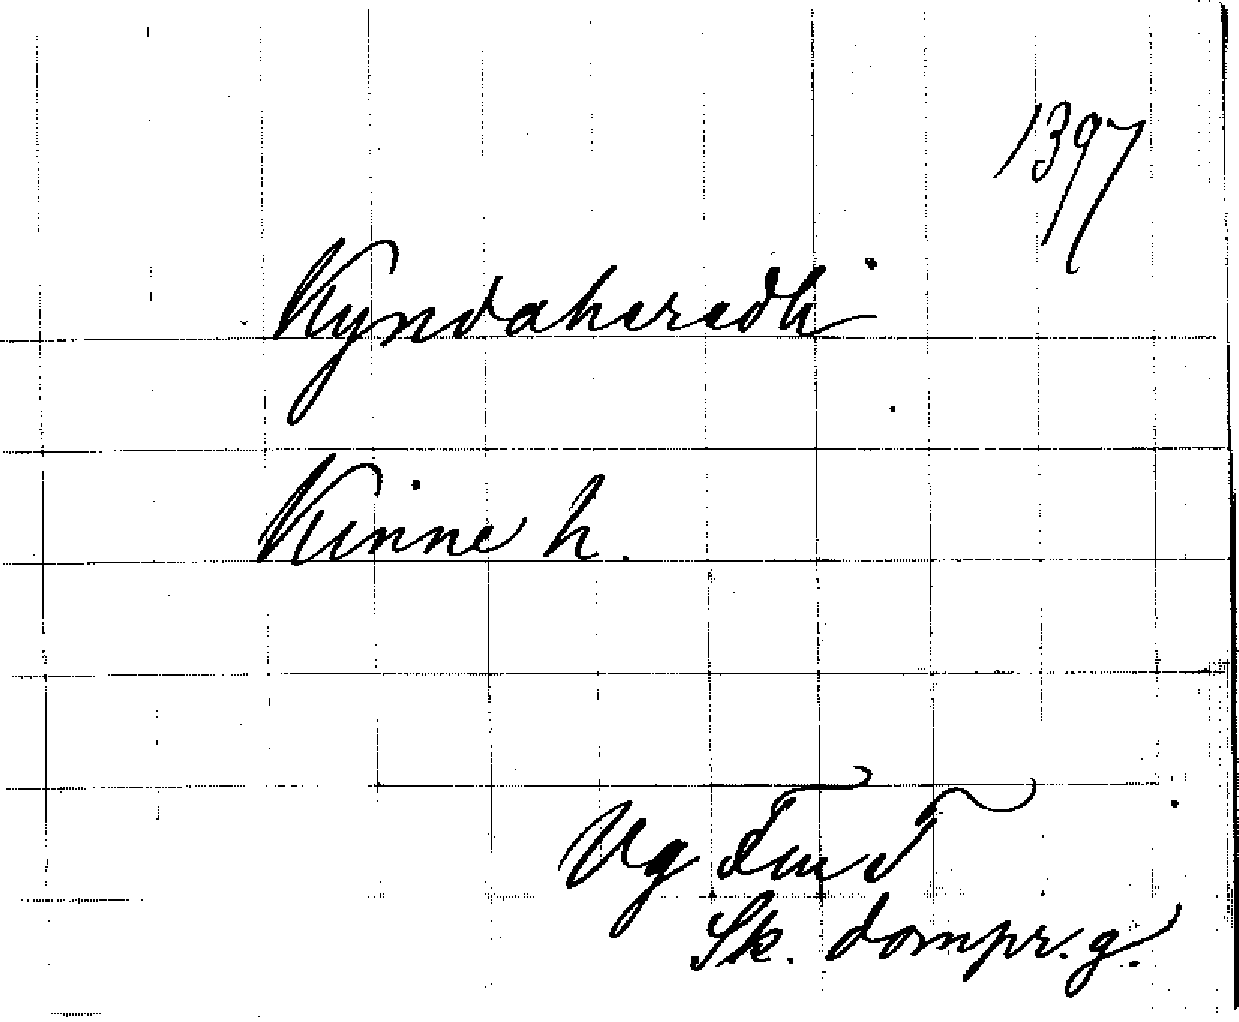 1397
Kyndaheradhi
Kinne h.
Vg
Sk. dompr. g.